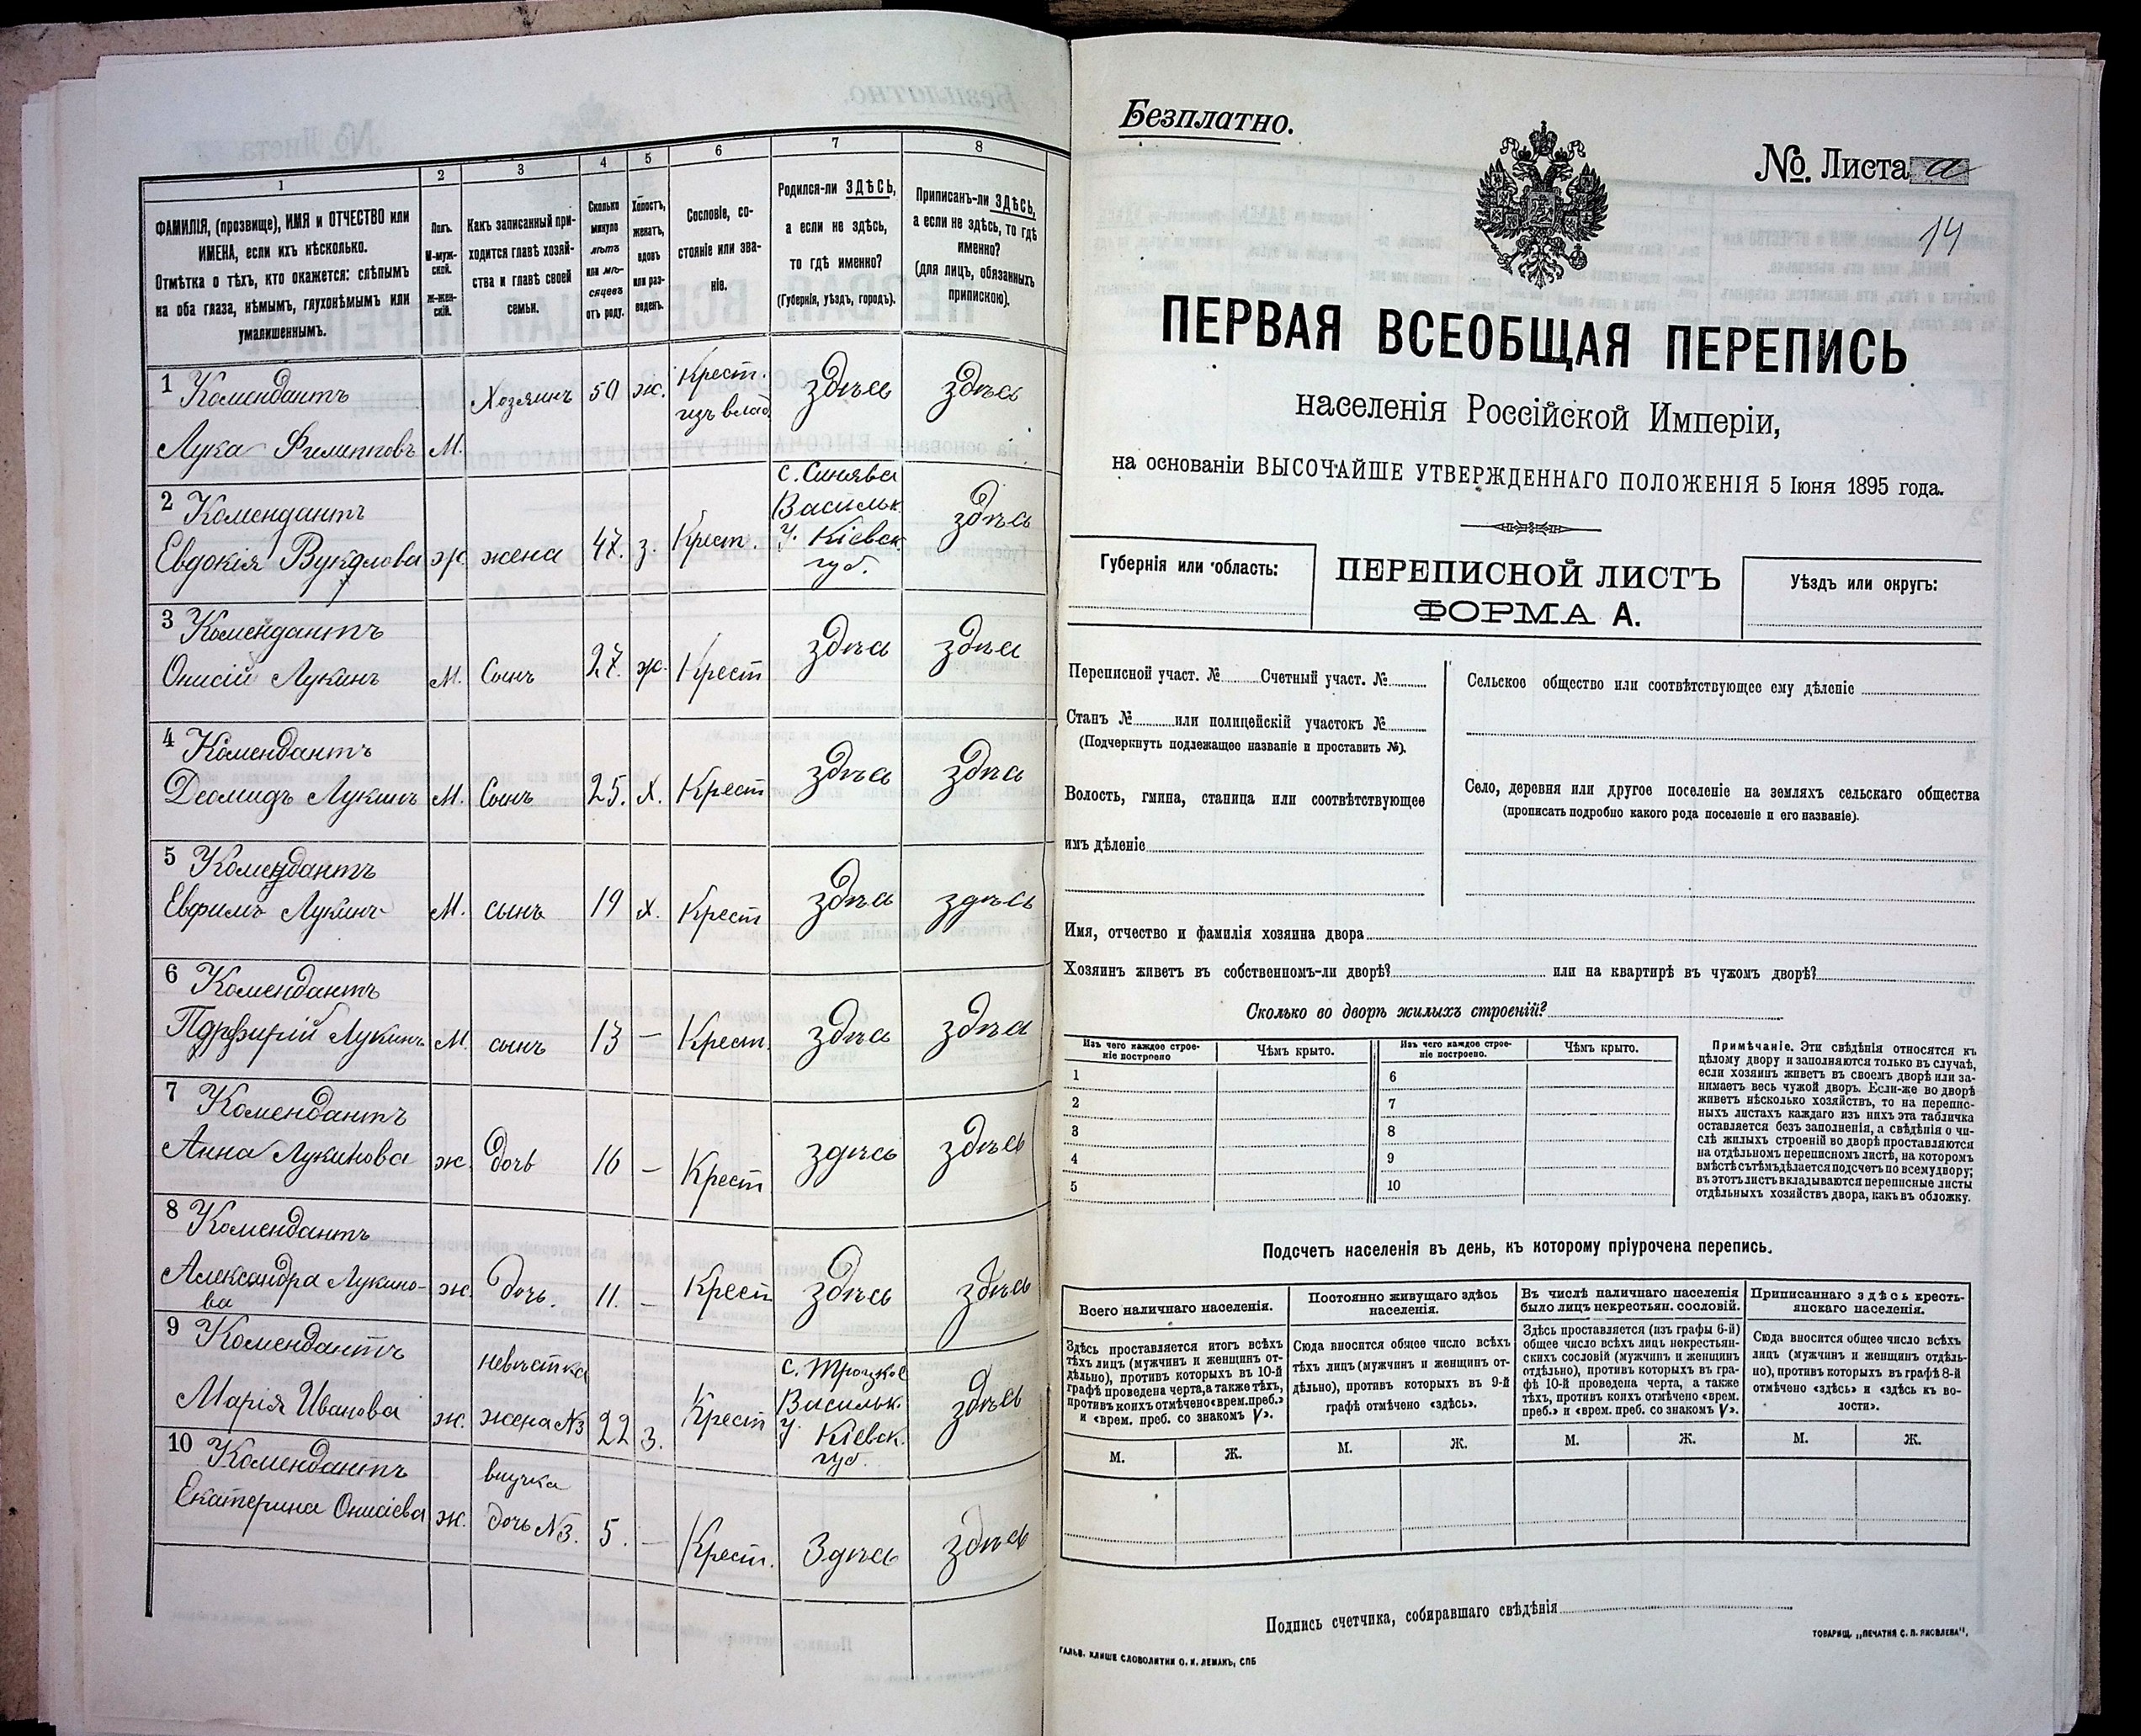 1
2
3
4
5
6
7
8
ФАМИЛІЯ, (прозвище), ИМЯ и ОТЧЕСТВО или
ИМЕНА, если ихъ нѣсколько.
Отмѣтка о тѣхъ, кто окажется: слѣпымъ
на оба глаза, нѣмымъ, глухонѣмымъ или
умалишеннымъ.
Полъ.
М-муж-
ской.
Ж-жен-
скій.
Какъ записанный при-
ходится главѣ хозяй-
ства и главѣ своей
семьи.
Сколько
минуло
лѣтъ
или мѣ-
сяцевъ
отъ роду.
Холостъ,
женатъ,
вдовъ
или раз-
веденъ.
Сословіе, со-
стояніе или зва-
ніе.
Родился-ли ЗДѢСЬ,
а если не здѣсь,
то гдѣ именно?
(Губернія, уѣздъ, городъ).
Приписанъ-ли ЗДѢСЬ,
а если не здѣсь, то гдѣ
именно?
(для лицъ, обязанныхъ
припискою).
1 Комендантъ
Лука Филипповъ М. Хозяинъ 50 ж. Крест. изъ влад. здѣсь здѣсь
2 Комендантъ
Евдокія Вукулова ж. жена 47. з. Крест. с. Синява Васильк. у. Кіевск. губ. здѣсь
3 Комендантъ
Онисій Лукинъ М. Сынъ 27. ж. Крест здѣсь здѣсь
4 Комендантъ
Деомидъ Лукинъ М. Сынъ 25. х. Крест здѣсь здѣсь
5 Комендантъ
Евфимъ Лукинъ М. сынъ 19 х. Крест здѣсь здѣсь
6 Комендантъ
Порфирій Лукинъ М. сынъ 13 — Крест. здѣсь здѣсь
7 Комендантъ
Анна Лукинова ж. дочь 16 — Крест здѣсь здѣсь
8 Комендантъ
Александра Лукино-
ва ж. дочь. 11. — Крест здѣсь здѣсь
9 Комендантъ
Марія Иванова ж. невѣстка жена №3 22 з. Крест с. Троцкое Васильк. у. Кіевск. губ. здѣсь
10 Комендантъ
Екатерина Онисіева ж. внучка дочь №3. 5. — Крест. Здѣсь здѣсь
Безплатно.
№. Листа а
14
ПЕРВАЯ ВСЕОБЩАЯ ПЕРЕПИСЬ
населенія Россійской Имперіи,
на основаніи ВЫСОЧАЙШЕ УТВЕРЖДЕННАГО ПОЛОЖЕНІЯ 5 Іюня 1895 года.
Губернія или область:
ПЕРЕПИСНОЙ ЛИСТЪ
ФОРМА А.
Уѣздъ или округъ:
Переписной участ. № Счетный участ. №
Станъ № или полицейскій участокъ №
(Подчеркнуть подлежащее названіе и проставить №).
Волость, гмина, станица или соотвѣтствующее
имъ дѣленіе
Сельское общество или соотвѣтствующее ему дѣленіе
Село, деревня или другое поселеніе на земляхъ сельскаго общества
(прописать подробно какого рода поселеніе и его названіе).
Имя, отчество и фамилія хозяина двора
Хозяинъ живетъ въ собственномъ-ли дворѣ? или на квартирѣ въ чужомъ дворѣ?
Сколько во дворѣ жилыхъ строеній?
Изъ чего каждое строе-
ніе построено
Чѣмъ крыто.
Изъ чего каждое строе-
ніе построено.
Чѣмъ крыто.
1 6
2 7
3 8
4 9
5 10
Примѣчаніе. Эти свѣдѣнія относятся къ
цѣлому двору и заполняются только въ случаѣ,
если хозяинъ живетъ въ своемъ дворѣ или за-
нимаетъ весь чужой дворъ. Если-же во дворѣ
живетъ нѣсколько хозяйствъ, то на перепис-
ныхъ листахъ каждаго изъ нихъ эта табличка
оставляется безъ заполненія, а свѣдѣнія о чи-
слѣ жилыхъ строеній во дворѣ проставляются
на отдѣльномъ переписномъ листѣ, на которомъ
вмѣстѣ съ тѣмъ дѣлается подсчетъ по всему двору;
въ этотъ листъ вкладываются переписные листы
отдѣльныхъ хозяйствъ двора, какъ въ обложку.
Подсчетъ населенія въ день, къ которому пріурочена перепись.
Всего наличнаго населенія.
Постоянно живущаго здѣсь
населенія.
Въ числѣ наличнаго населенія
было лицъ некрестьян. сословій.
Приписаннаго здѣсь кресть-
янскаго населенія.
Здѣсь проставляется итогъ всѣхъ
тѣхъ лицъ (мужчинъ и женщинъ от-
дѣльно), противъ которыхъ въ 10-й
графѣ проведена черта, а также тѣхъ,
противъ коихъ отмѣчено «врем. преб.»
и «врем. преб. со знакомъ V».
Сюда вносится общее число всѣхъ
тѣхъ лицъ (мужчинъ и женщинъ от-
дѣльно), противъ которыхъ въ 9-й
графѣ отмѣчено «здѣсь».
Здѣсь проставляется (изъ графы 6-й)
общее число всѣхъ лицъ некрестьян-
скихъ сословій (мужчинъ и женщинъ
отдѣльно), противъ которыхъ въ гра-
фѣ 10-й проведена черта, а также
тѣхъ, противъ коихъ отмѣчено «врем.
преб.» и «врем. преб. со знакомъ V».
Сюда вносится общее число всѣхъ
лицъ (мужчинъ и женщинъ отдѣль-
но), противъ которыхъ въ графѣ 8-й
отмѣчено «здѣсь» и «здѣсь къ во-
лости».
М. Ж. М. Ж. М. Ж. М. Ж.
Подпись счетчика, собиравшаго свѣдѣнія
ГАЛЬВ. КЛИШЕ СЛОВОЛИТНИ О. И. ЛЕМАНЪ, СПБ
ТОВАРИЩ. „ПЕЧАТНЯ С. П. ЯКОВЛЕВА".